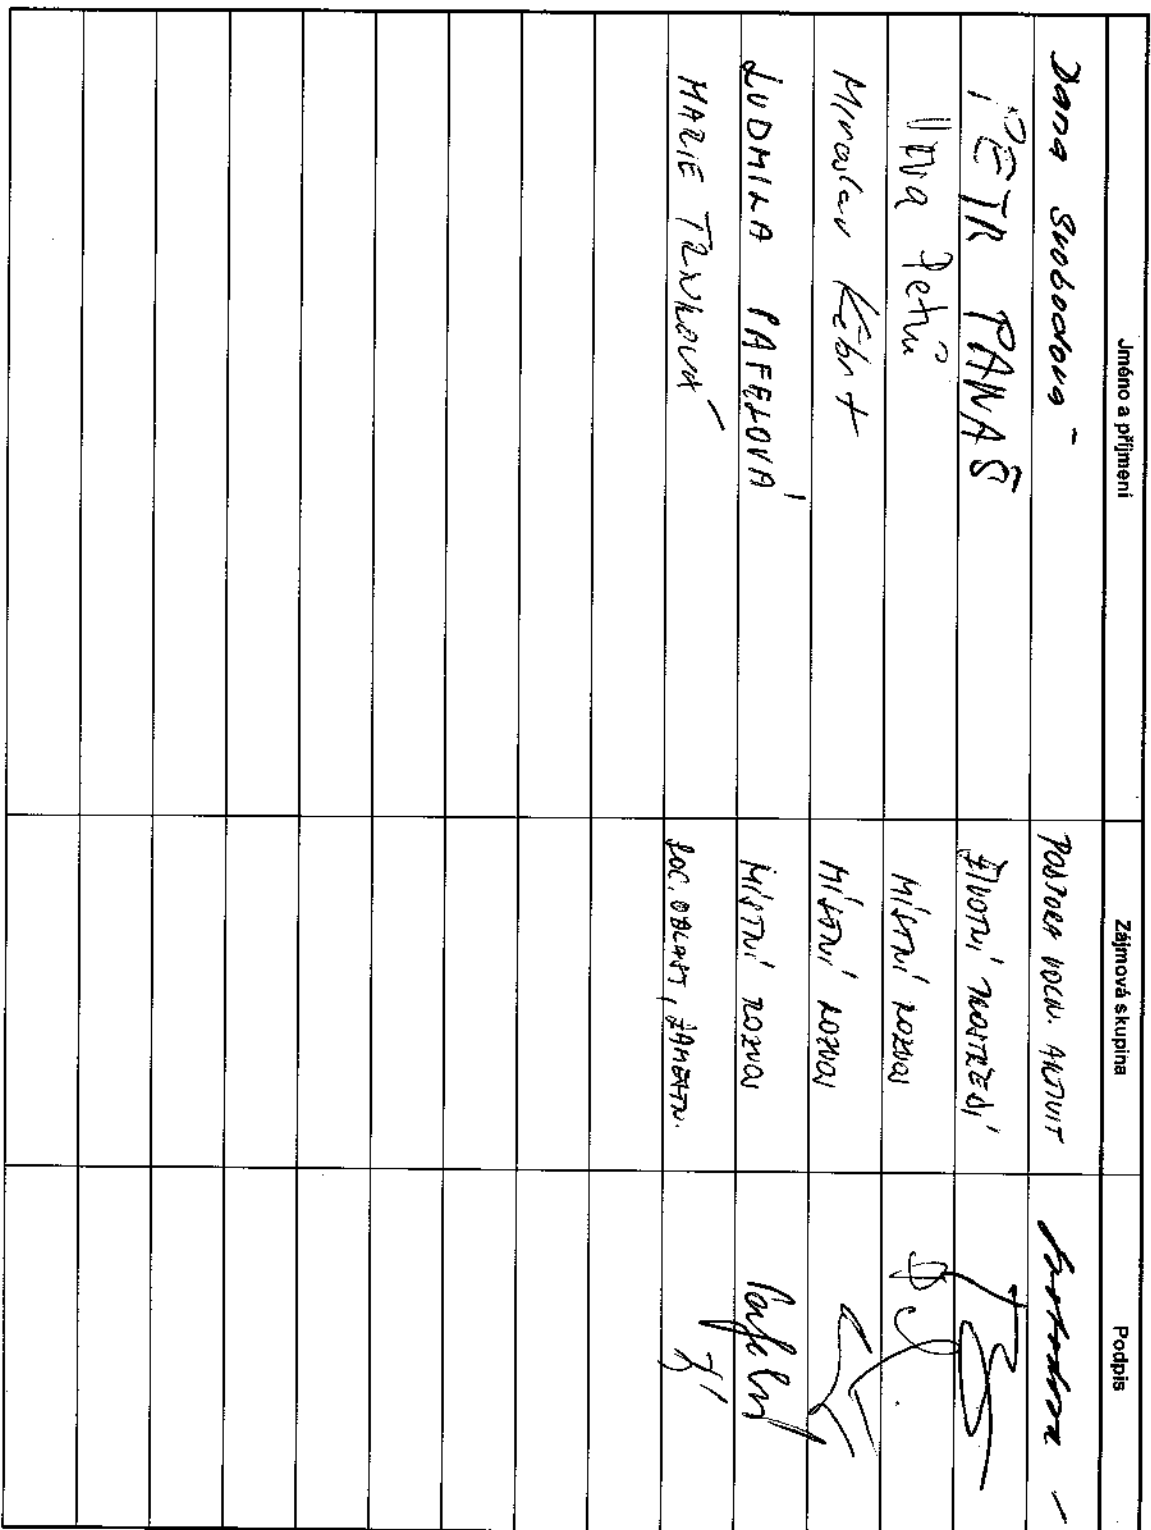 Jméno a příjmení Zájmová skupina Podpis
Dana Svobodová PODPORA VOLN. AKTIVIT
PETR PANAŠ ŽIVOTNÍ PROSTŘEDÍ
Petrů MÍSTNÍ ROZVOJ
Miroslav Kébrt MÍSTNÍ ROZVOJ
LUDMILA PAFELOVÁ MÍSTNÍ ROZVOJ
MARIE TRNKOVÁ SOC. OBLAST, ZAMĚSTN.